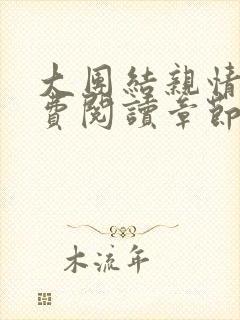 大團結親情
費閱讀章節
木流年